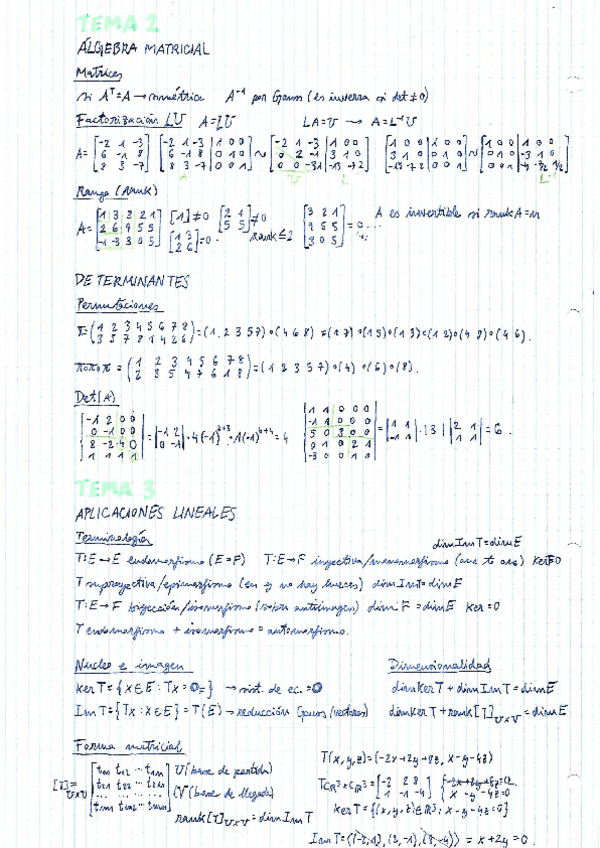 TEMA 2
ÁLGEBRA MATRICIAL
Matrices
si Aᵀ=A → simétrica    A⁻¹ por Gauss (es inversa si det ≠ 0)
Factorización LU   A=LU    LA=U → A=L⁻¹U
A= [-2 1 -3; 6 -1 8; 8 3 -7] [-2 1 -3 | 1 0 0; 6 -1 8 | 0 1 0; 8 3 -7 | 0 0 1] ~ [-2 1 -3 | 1 0 0; 0 2 -1 | 3 1 0; 0 0 | -13 -7 2]
U    L    L⁻¹
Rango (rank)
A= [1 3 3 2 1; 2 6 9 5 5; -1 -3 3 0 5]  [1] ≠0  [2 1; 5 5] ≠0  [1 3; 2 6] =0  rank ≤ 2  [3 2 1; 9 5 5; 3 0 5] =0...   A es invertible si rank A=n
DETERMINANTES
Permutaciones
π=(1 2 3 4 5 6 7 8; 3 5 7 8 1 4 2 6)
(1 2 3 4 5 6 7 8; 2 3 5 4 7 6 1 8) = (1 2 3 5 7)∘(4)∘(6)∘(8).
Det(A)
|-1 2 0 0; 0 -1 0 0; 8 -2 4 0; 1 1 1 1| = |-1 2; 0 -1| · 4
|1 1 0 0 0; -1 1 0 0 0; 5 0 3 0 0; 0 0 0 2 1; -3 0 0 1 1| = |1 1; -1 1| · |3| · |2 1; 1 1| = 6.
TEMA 3
APLICACIONES LINEALES
Terminología    dim Im T = dim E
T: E→E endomorfismo (E=F)   T: E→F inyectiva/monomorfismo   ker=0
T suprayectiva/epimorfismo (en y no hay huecos) dim Im T = dim E
T: E→F biyección/isomorfismo   dim F = dim E   ker=0
T endomorfismo + isomorfismo = automorfismo.
Núcleo e imagen
ker T={x∈E: Tx=0} → sist. de ec.=0
Im T={Tx: x∈E}=T(E) → reducción Gauss (vectores)
Dimensionalidad
dim ker T + dim Im T = dim E
dim ker T + rank[T]ᵤₓᵥ = dim E
Forma matricial
[T]= [t₁₁ t₁₂ ... t₁ₙ; t₂₁ t₂₂ ... t₂ₙ; ... ; tₘ₁ tₘ₂ ... tₘₙ]
U (base de partida)
V (base de llegada)
rank[T]ᵤₓᵥ = dim Im T
T(x,y,z)=(-2x+2y+8z, x-y-4z)
[-2 2 8; 1 -1 -4]  x-y-4z=0
ker T={(x,y,z)∈ℝ³: x-y-4z=0}
Im T=  = x+2y=0.